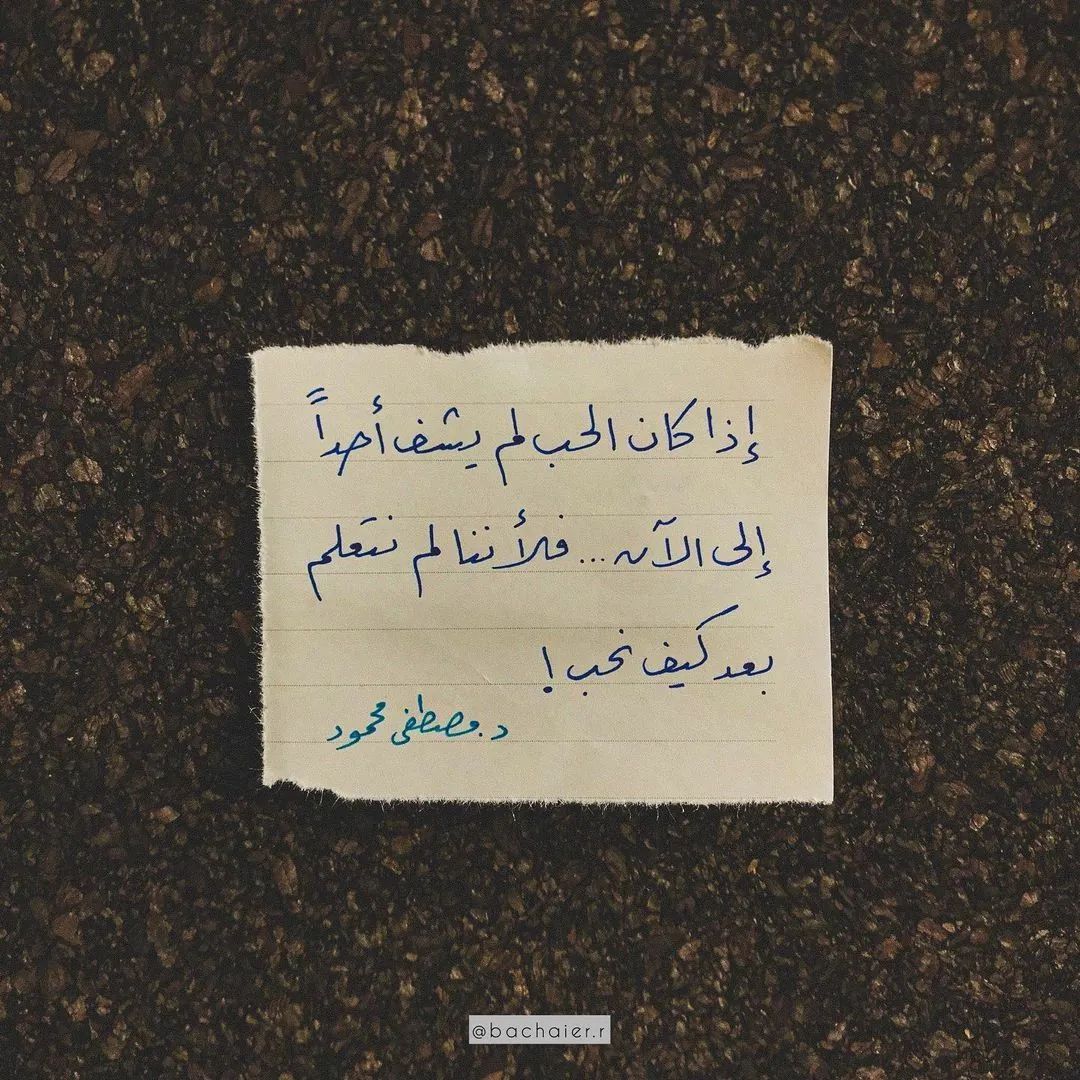 إذا كان الحب لم يشف أحداً
إلى الآن... فلأننا لم نتعلم
بعد كيف نحب!
د. مصطفى محمود
@bachaier.r